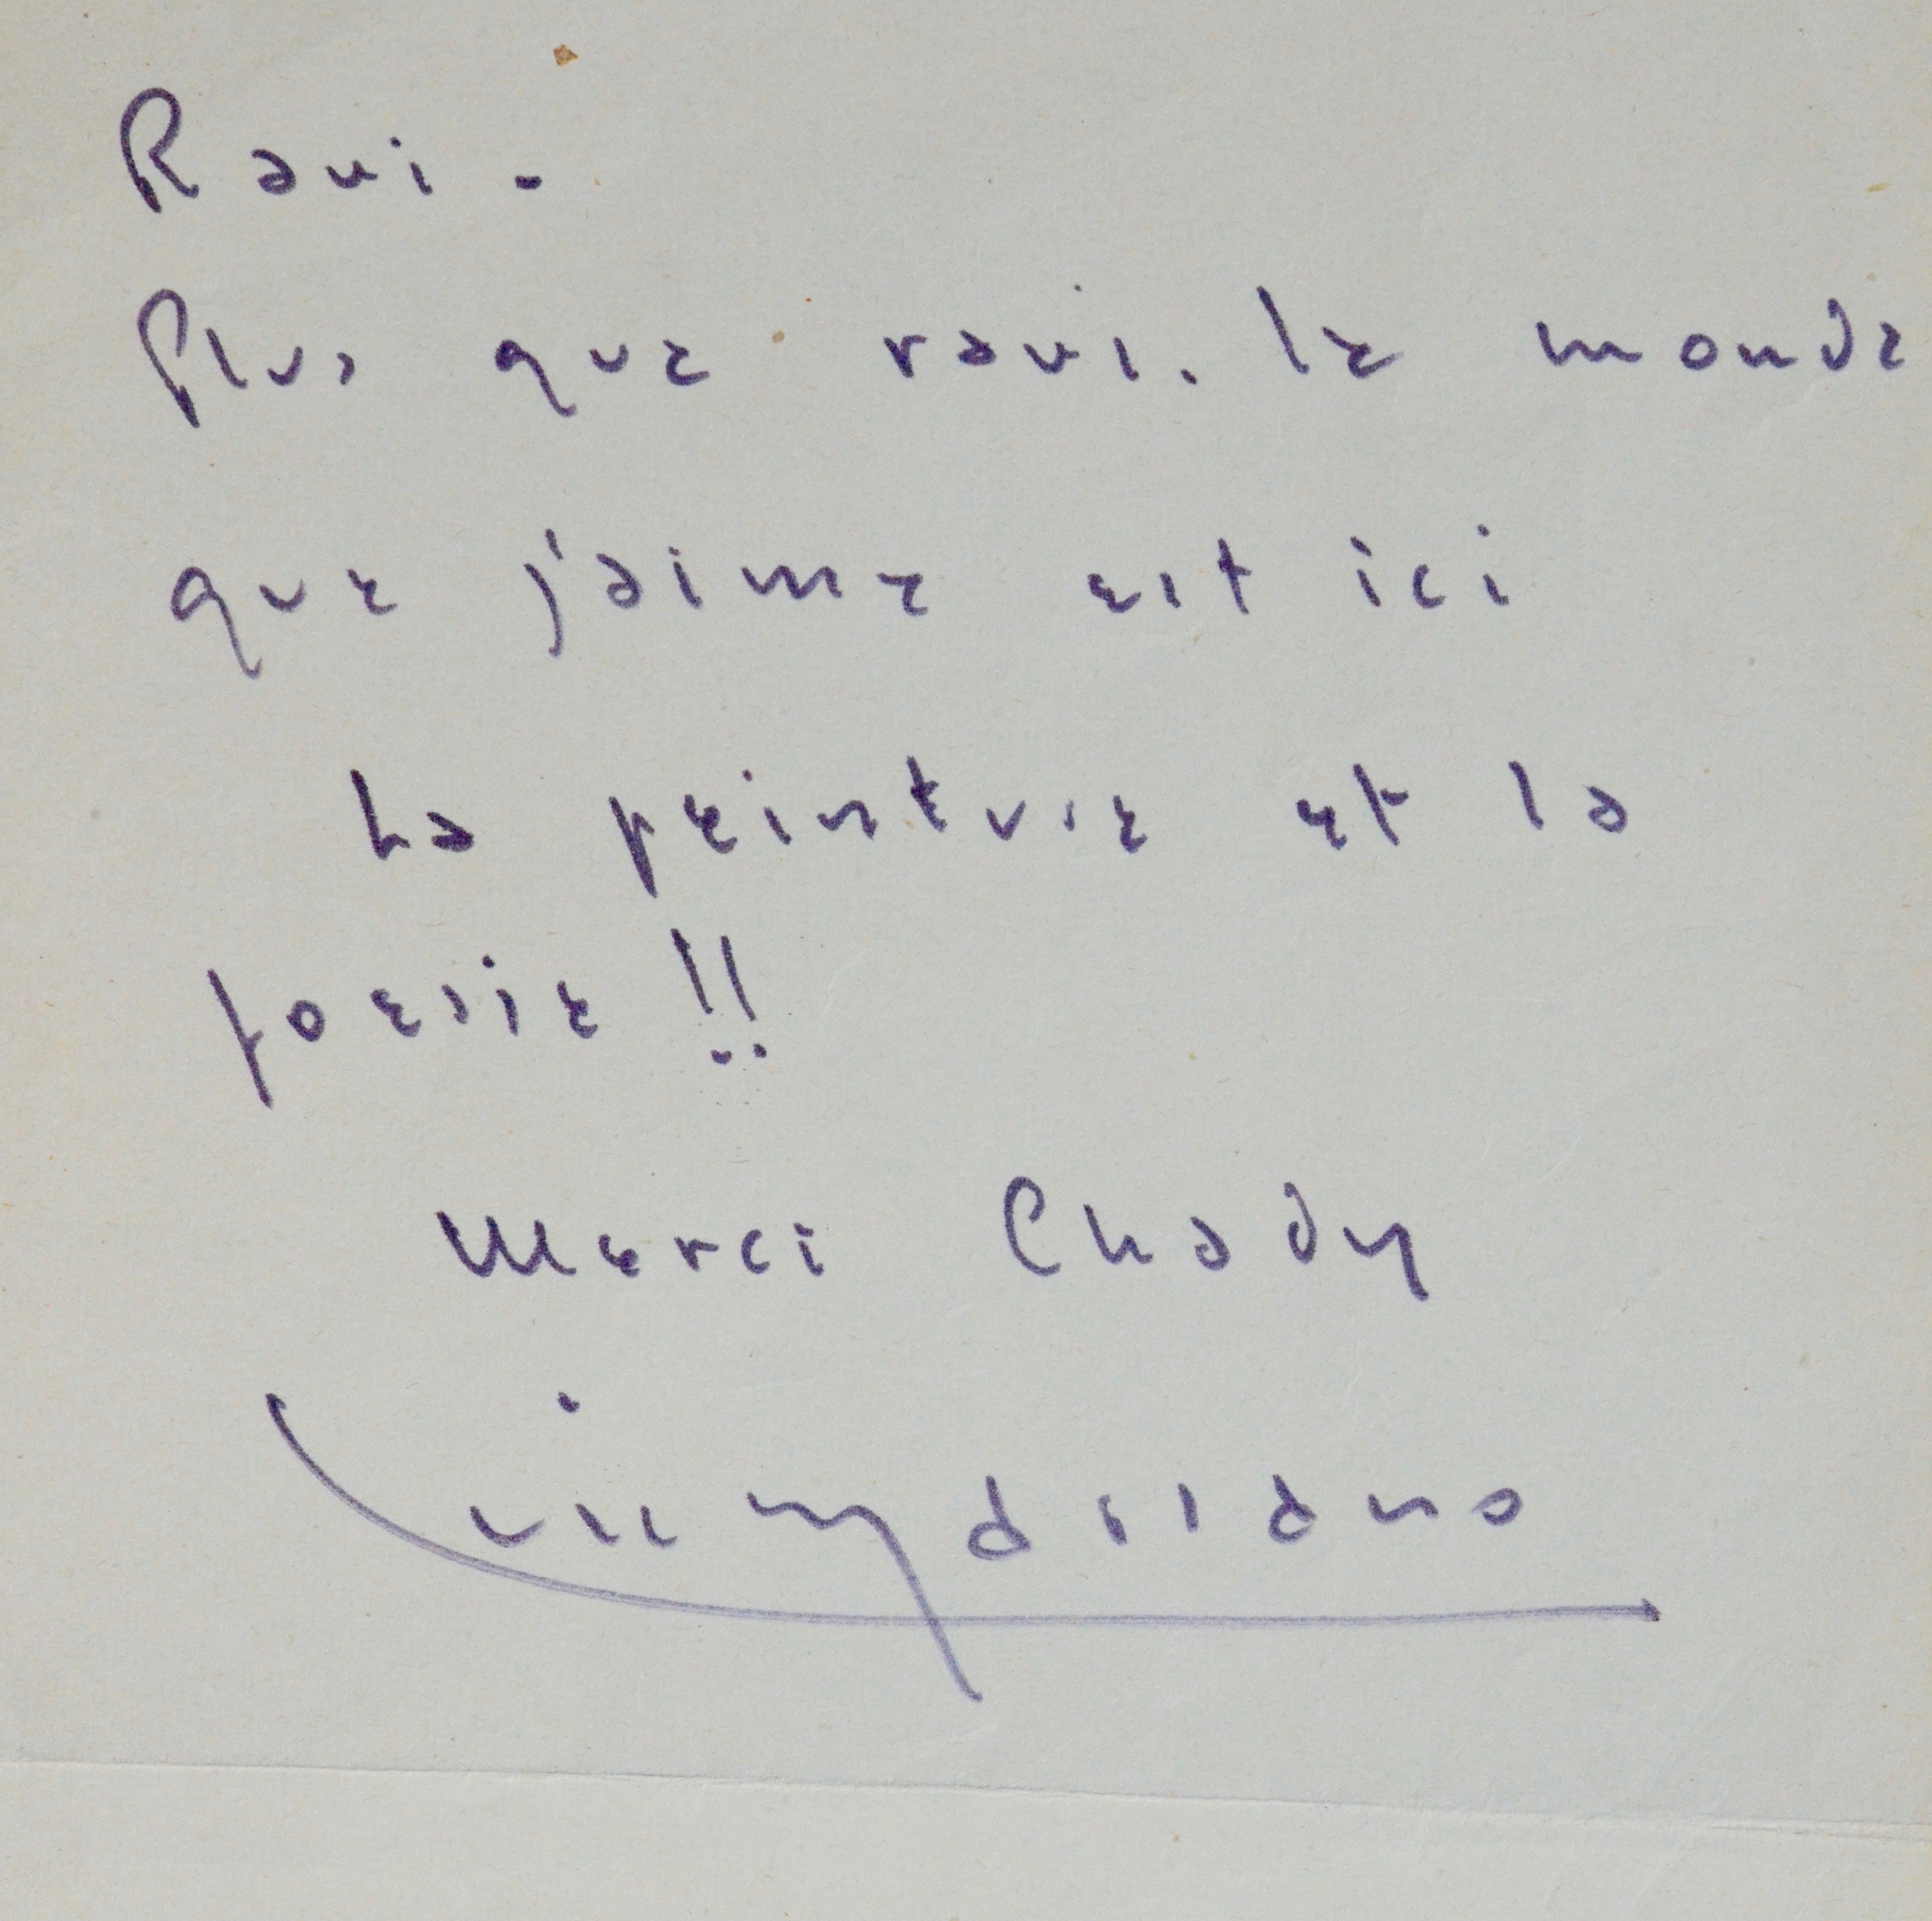 Ravi.
Plus que ravi. le monde
que j'aime est ici
La peinture et la
poesie !!
Merci Chady